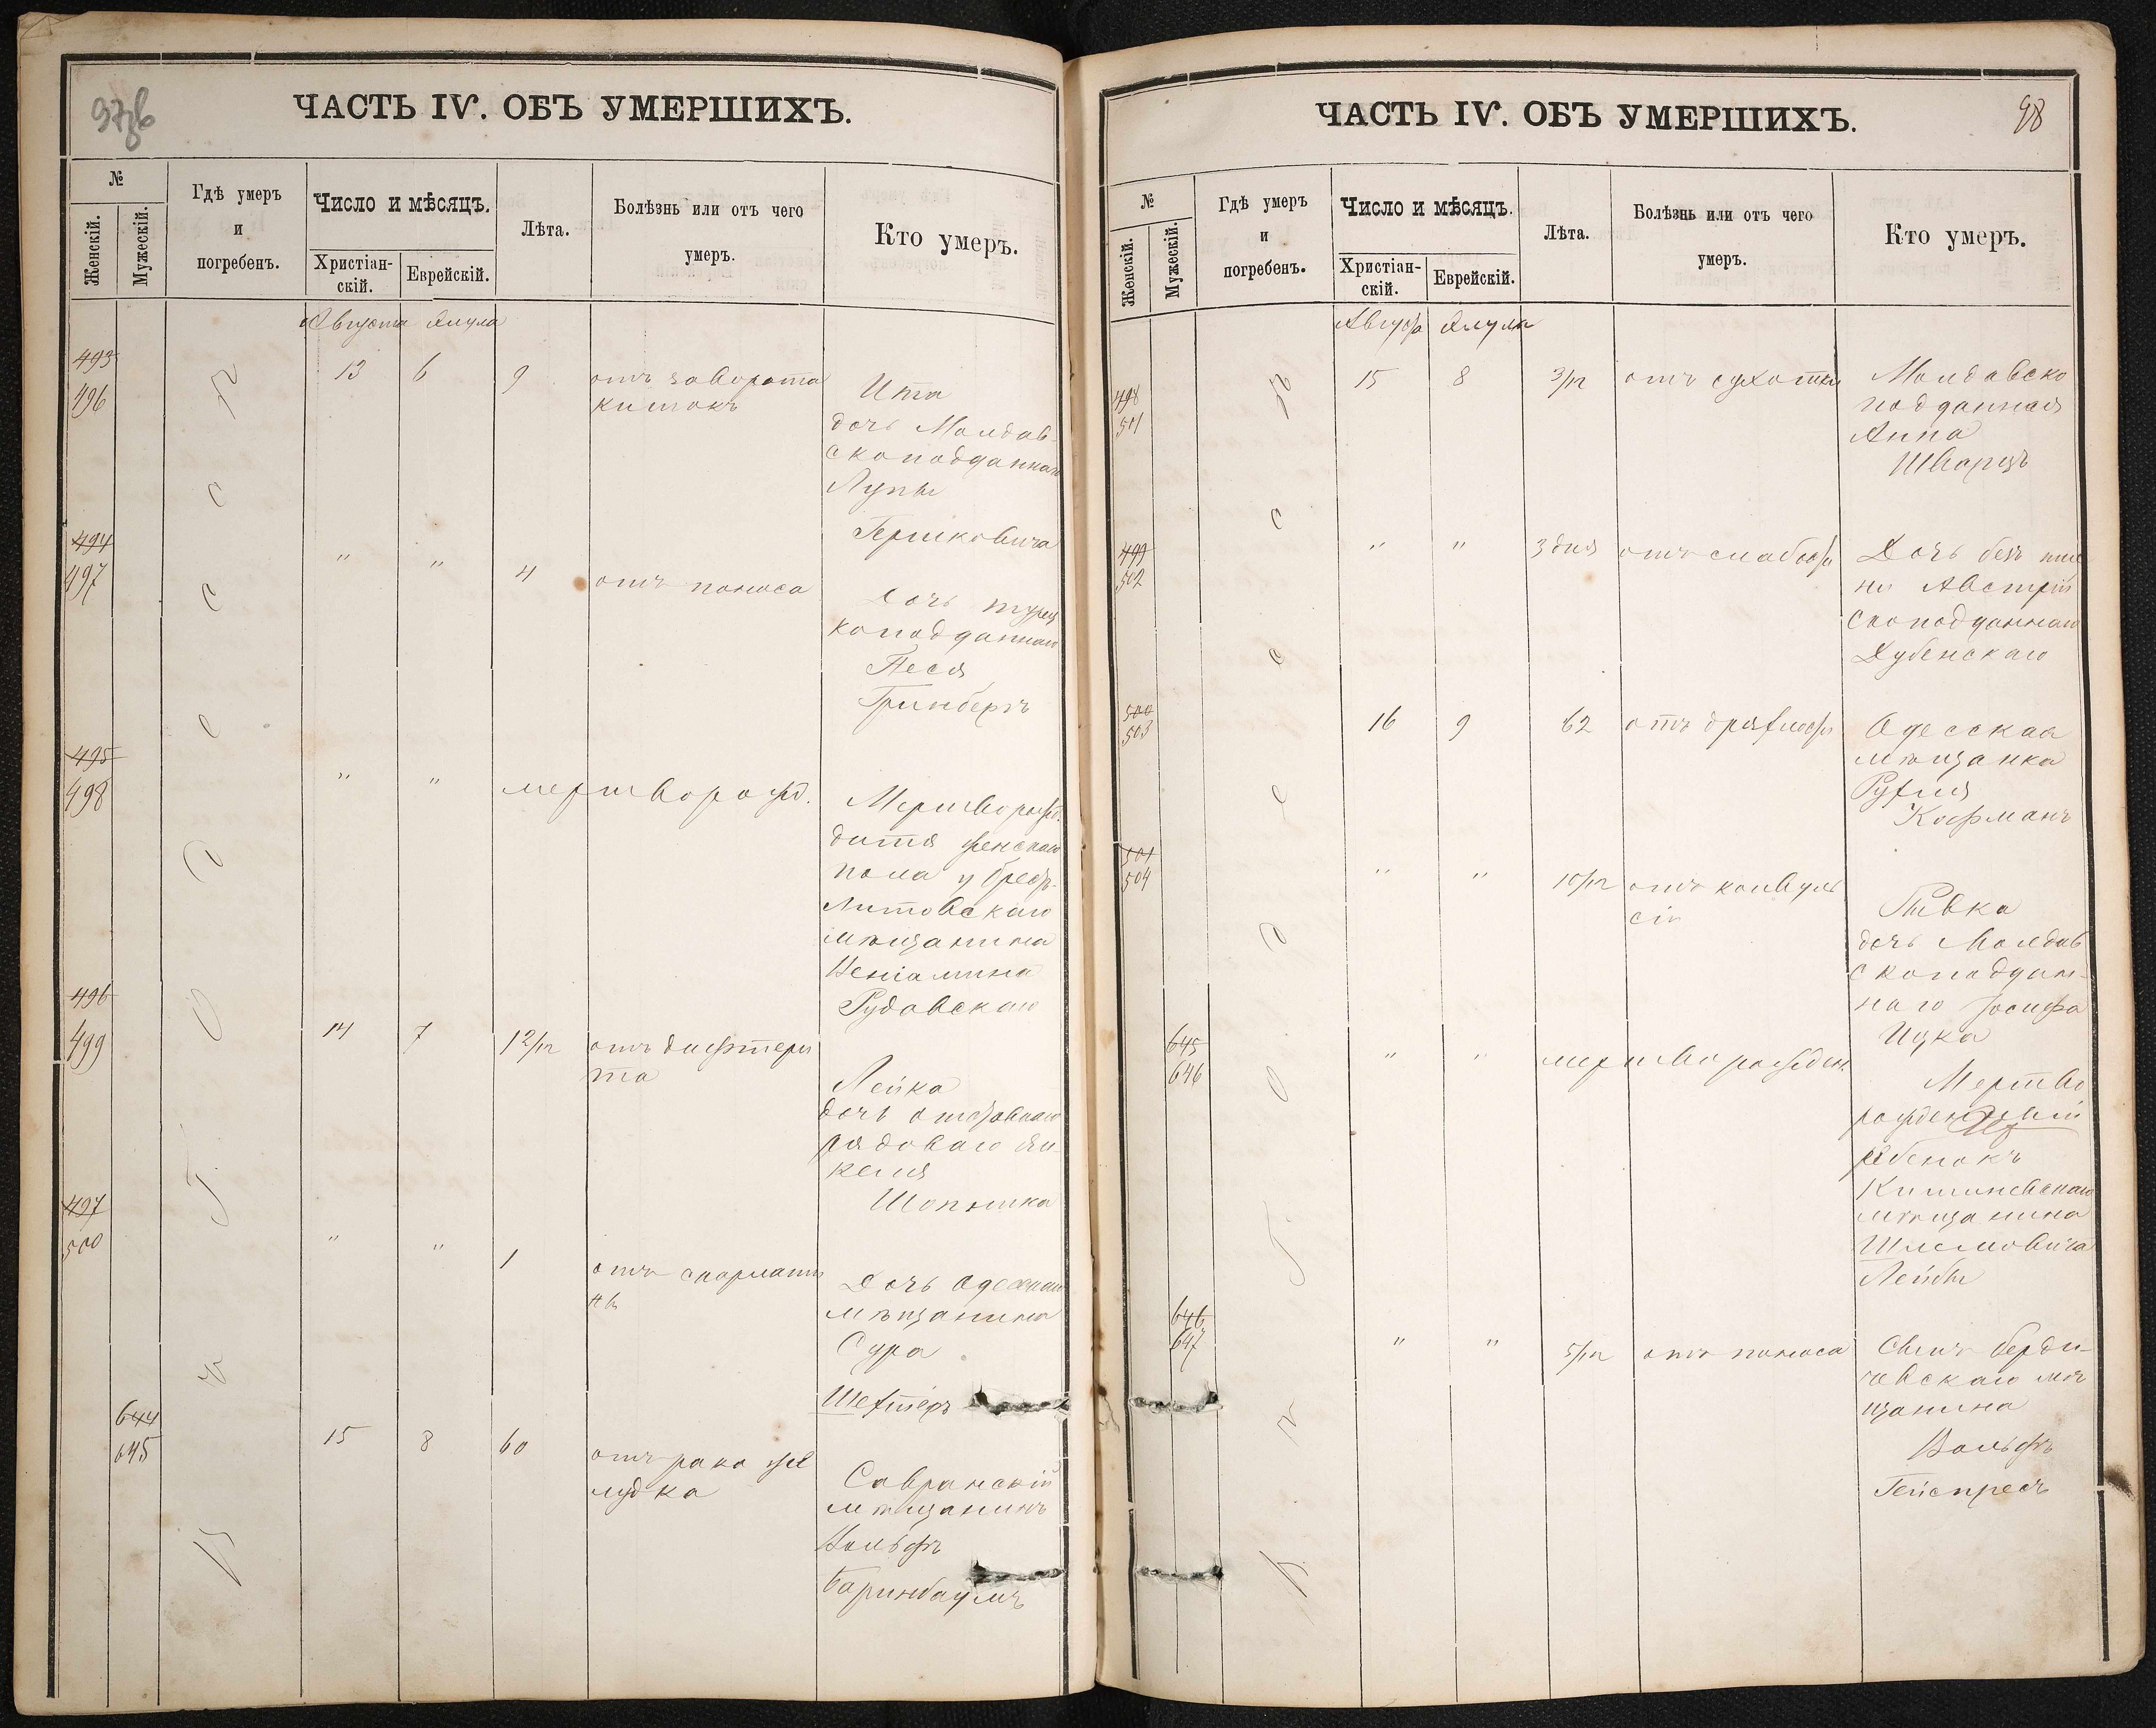 97об
ЧАСТЬ IV. ОБЪ УМЕРШИХЪ.
№
Женскій.
Мужескій.
Гдѣ умеръ
и
погребенъ.
Число и мѣсяцъ.
Христіан-
скій.
Еврейскій.
Лѣта.
Болѣзнь или отъ чего
умеръ.
Кто умеръ.
Августа Элула
493
496
13 6 9 отъ заворота
кишокъ
Ита
дочь Молдав-
скоподданнаго
Лупы
Гершковича
494
497
" " 4 отъ поноса
Дочь турец
коподданнаго
Песя
Гринбергъ
495
498
" " мертворожд.
Мертворожд.
дитя женскаго
пола у Брест-
Литовскаго
мѣщанина
Веніамина
Рудавскаго
496
499
14 7 12/12 отъ дифтери
та
Лейка
дочь отставнаго
рядоваго Ян-
келя
Шопника
497
500
" " 1 отъ скарлати
ны
Дочь Одесскаго
мѣщанина
Сура
Шехтеръ
644
645
15 8 60 отъ рака же
лудка
Савранскій
мѣщанинъ
Вольфъ
Баринбаумъ
В С С С Д О Г
98
ЧАСТЬ IV. ОБЪ УМЕРШИХЪ.
№
Женскій.
Мужескій.
Гдѣ умеръ
и
погребенъ.
Число и мѣсяцъ.
Христіан-
скій.
Еврейскій.
Лѣта.
Болѣзнь или отъ чего
умеръ.
Кто умеръ.
Августа Элула
498
501
15 8 3/12 отъ сухотки
Молдавско
подданная
Анна
Шварцъ
499
502
" " 3 дня отъ слабости
Дочь безъ име
ни Австрій
скоподданнаго
Дубенскаго
500
503
16 9 62 отъ дряхлости
Одесская
мѣщанка
Рухля
Кофманъ
501
504
" " 10/12 отъ конвуль
сіи
Ривка
дочь Молдав
скоподдан-
наго Іосифа
Ицка
645
646
" " мертворожден.
Мертво
рожденный
ребенокъ
Кишиневскаго
мѣщанина
Шлемовича
Лейбы
646
647
" " 5/12 отъ поноса
Сынъ Берди-
чевскаго мѣ
щанина
Вольфъ
Гейспресъ